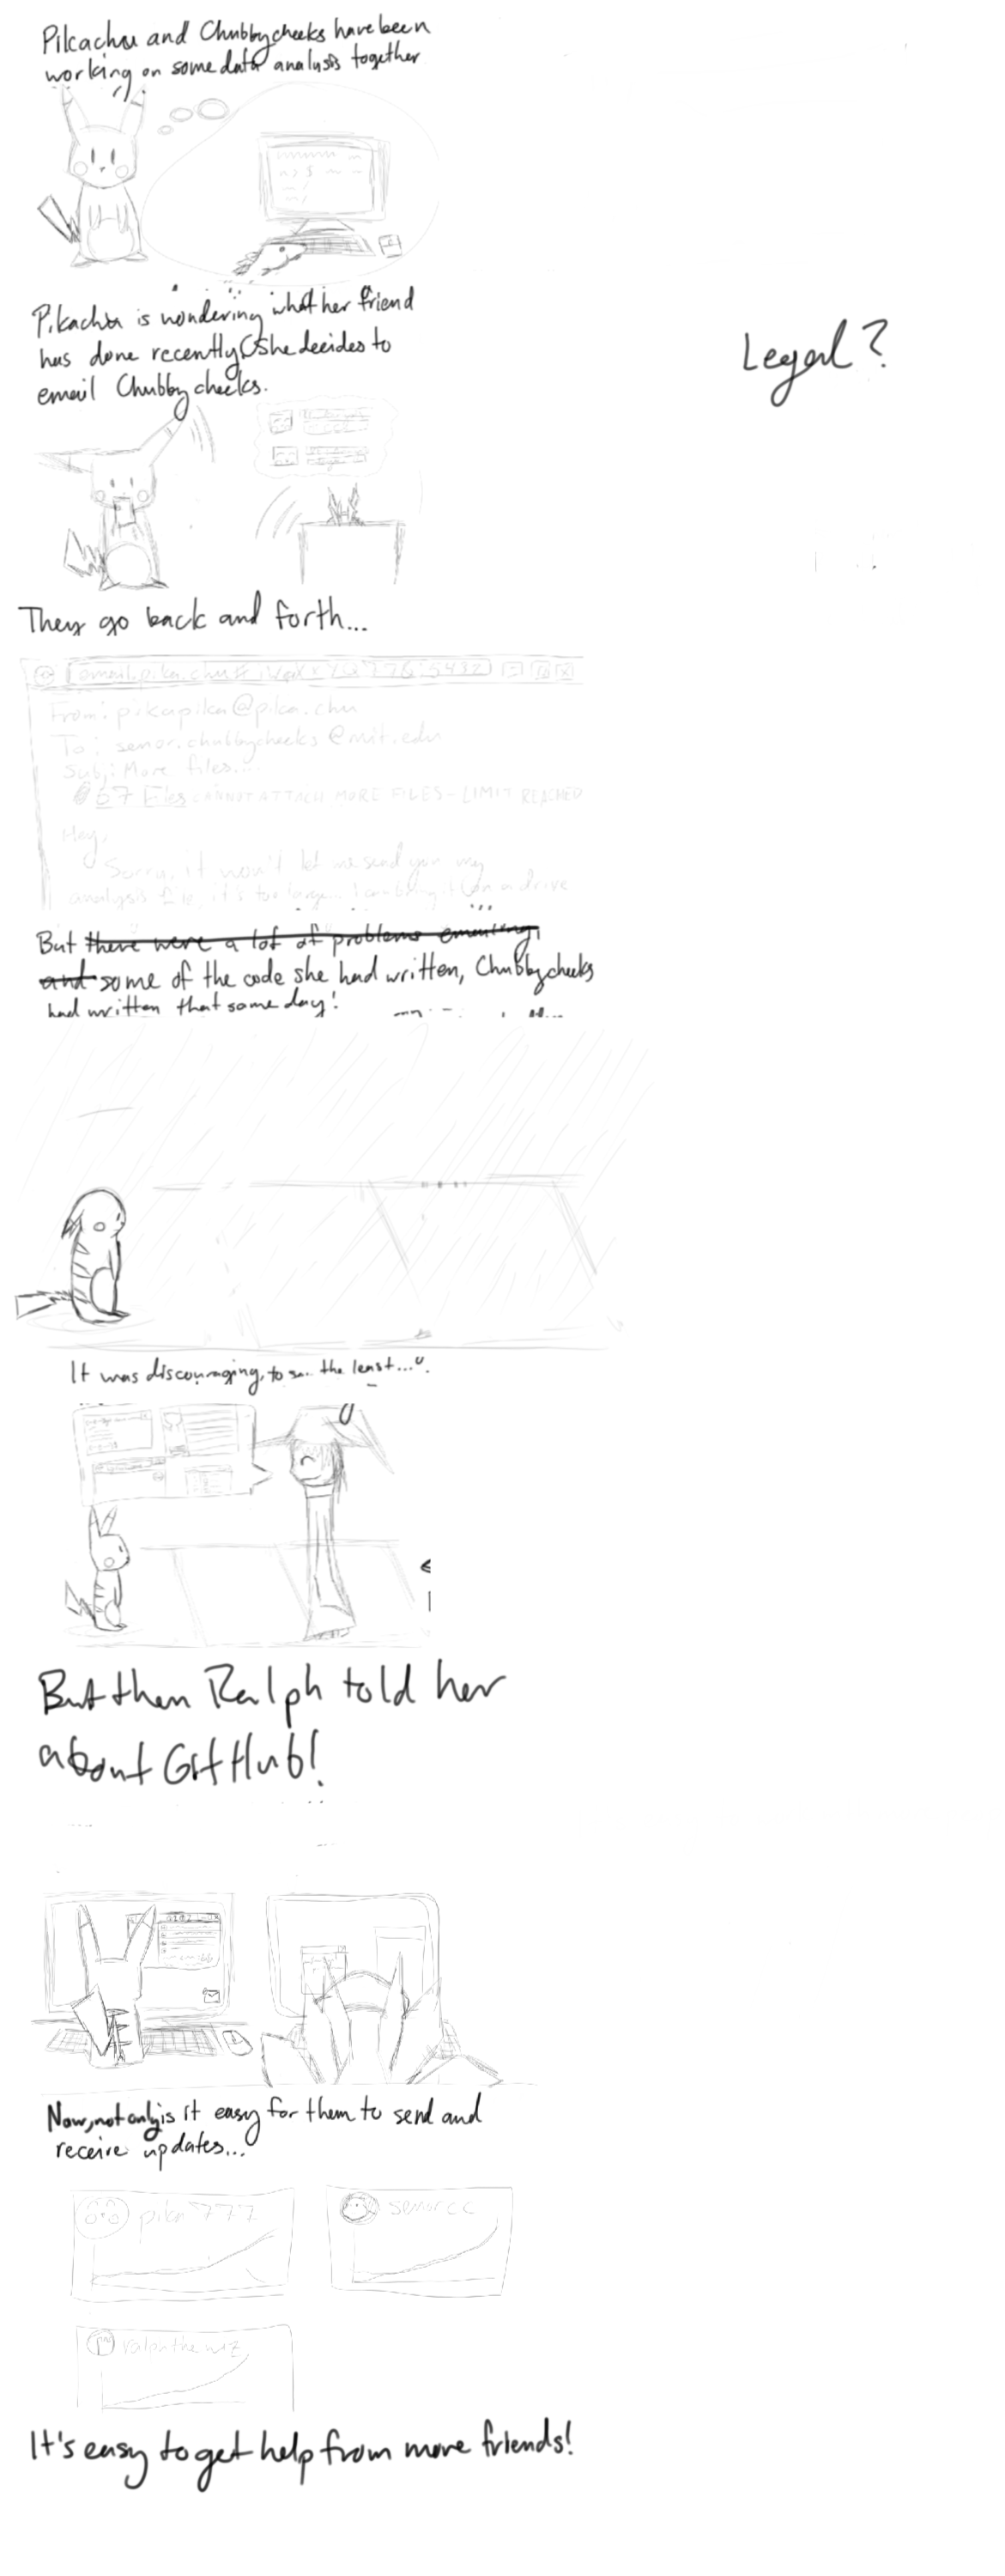 Pikachu and Chubbycheeks have been
working on some data analysis together
Pikachu is wondering what her friend
has done recently so she decides to
email Chubbycheeks.
Legal?
They go back and forth...
From: pikapika@pika.chu
To: senor.chubbycheeks@mit.edu
Subj: More files...
67 Files CANNOT ATTACH MORE FILES - LIMIT REACHED
Hey,
Sorry, it won't let me send you my
analysis file, it's too large... I can bring it on a drive
But there were a lot of problems emailing,
and some of the code she had written, Chubbycheeks
had written that same day!
It was discouraging, to say the least...
But then Ralph told her
about GitHub!
Now, not only is it easy for them to send and
receive updates...
pika777
senorcc
ralphthewiz
It's easy to get help from more friends!